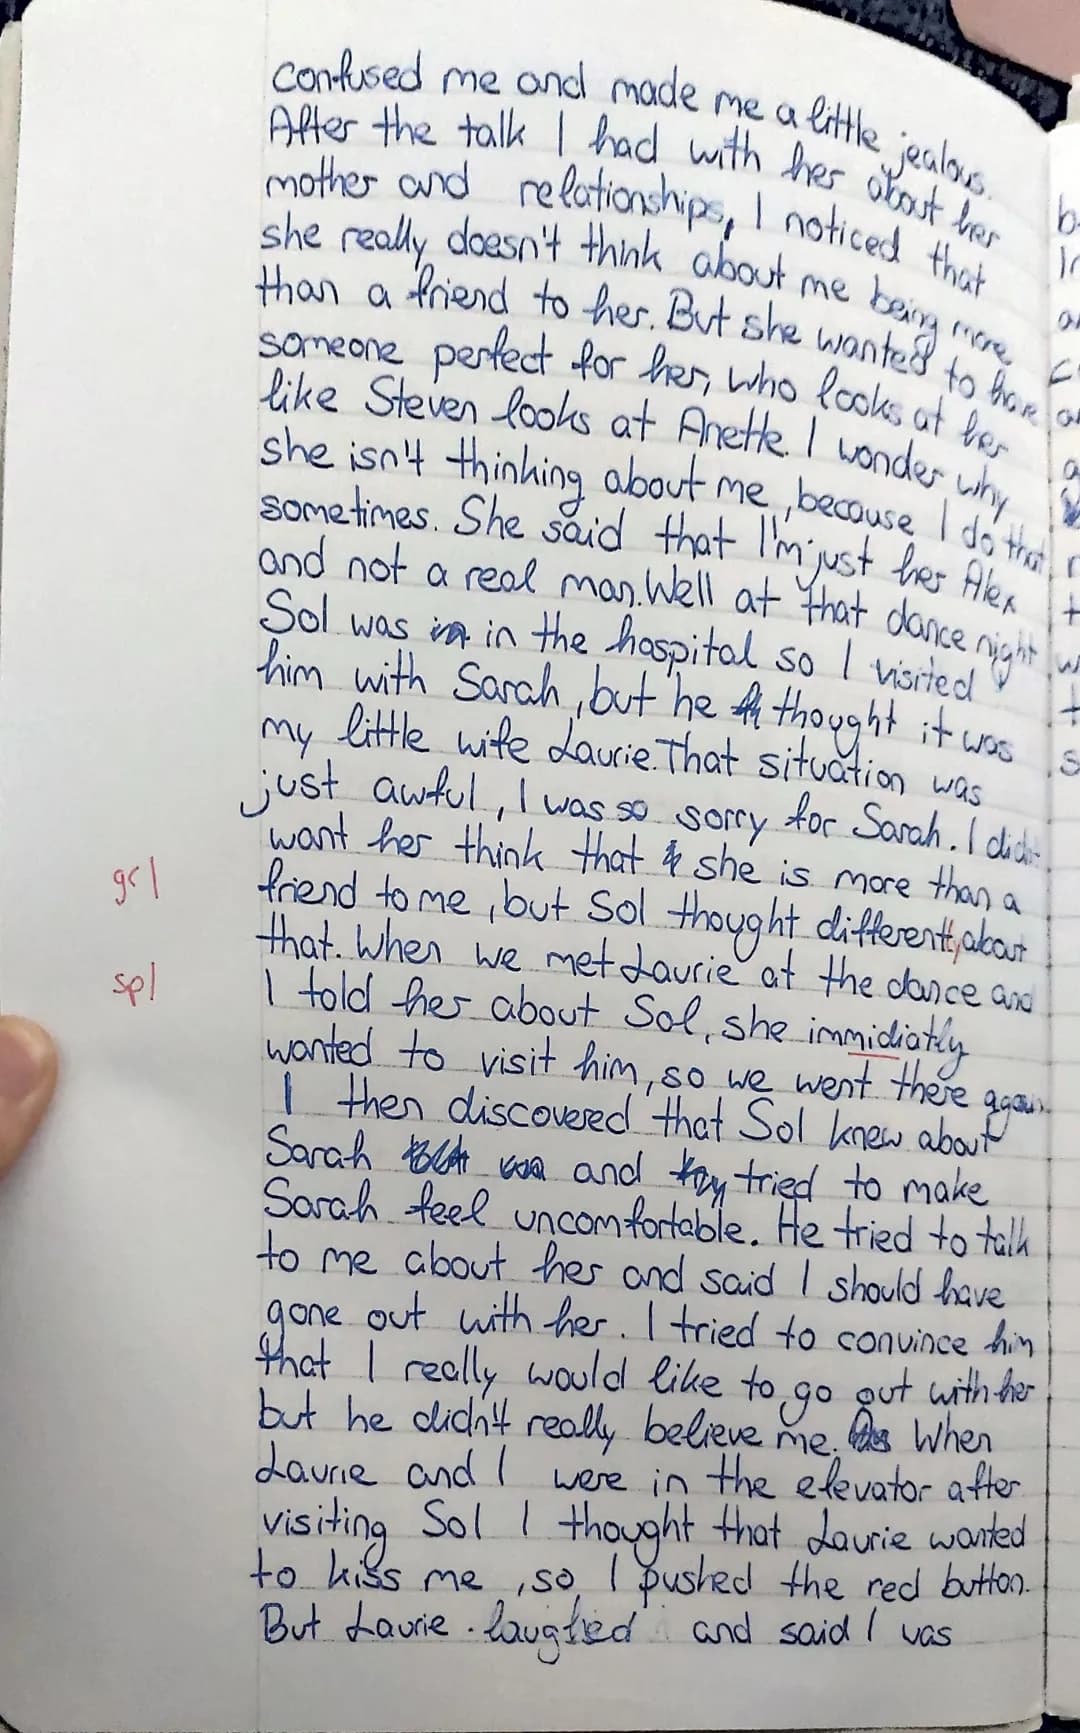 confused me and made me a little jealous.
After the talk I had with her about her
mother and relationships, I noticed that
she really doesn't think about me being more
than a friend to her. But she wanted to have
someone perfect for her, who looks at her
like Steven looks at Anette. I wonder why
she isn't thinking about me, because I do that
sometimes. She said that I'm just her Alex
and not a real man. Well at that dance night
Sol was in the hospital so I visited
him with Sarah, but he thought it was
my little wife Laurie. That situation was
just awful, I was so sorry for Sarah. I didn't
want her think that she is more than a
gr|
friend to me, but Sol thought differently about
that. When we met Laurie at the dance and
sp|
I told her about Sol, she immidiatly
wanted to visit him, so we went there again.
I then discovered that Sol knew about
Sarah and tried to make
Sarah feel uncomfortable. He tried to talk
to me about her and said I should have
gone out with her. I tried to convince him
that I really would like to go out with her
but he didn't really believe me. When
Laurie and I were in the elevator after
visiting Sol I thought that Laurie wanted
to kiss me, so I pushed the red button.
But Laurie laughed and said I was